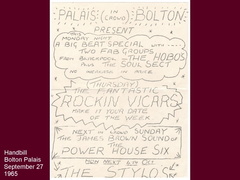 PALAIS (IN CROWD) BOLTON
PRESENT
THIS MONDAY NIGHT
A BIG BEAT SPECIAL WITH ----
TWO FAB GROUPS
FROM BLACKPOOL -- THE HOBOS
PLUS THE SOUL SECT
NO INCREASE IN PRICE
(THURSDAY)
THE FANTASTIC
ROCKIN VICARS
MAKE IT YOUR DATE
OF THE WEEK
NEXT IN CROWD SUNDAY
THE JAMES BROWN SOUND OF
THE
POWER HOUSE SIX
MON NEXT 4TH OCT
THE STYLOS
Handbill
Bolton Palais
September 27
1965